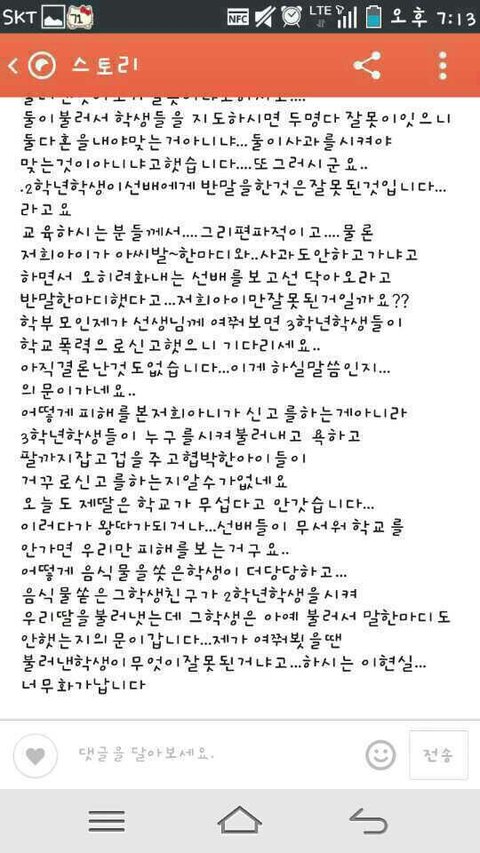 SKT 71 NFC LTE 오후 7:13
스토리
둘이불러서 학생들을 지도하시면 두명다 잘못이잇으니
둘다혼을내야맞는거아니냐...둘이사과를시켜야
맞는것이아니냐고햇습니다....또그러시군요..
.2학년학생이선배에게 반말을한것은잘못된것입니다...
라고요
교육하시는분들께서....그리편파적이고....물론
저희아이가 아씨발~한마디와..사과도안하고가냐고
하면서 오히려화내는 선배를보고선 닥아오라고
반말한마디했다고...저희아이만잘못된거일까요??
학부모인제가 선생님께 여쭤보면 3학년학생들이
학교폭력으로신고햇으니 기다리세요..
아직결론난것도없습니다...이게 하실말씀인지...
의문이가네요..
어떻게 피해를본저희아니가 신고를하는게아니라
3학년학생들이 누구를시켜불러내고 욕하고
팔까지잡고겁을주고협박한아이들이
거꾸로신고를하는지알수가없네요
오늘도 제딸은 학교가 무섭다고 안갓습니다...
이러다가 왕따가되거나...선배들이 무서워 학교를
안가면 우리만 피해를보는거구요..
어떻게 음식물을쏫은학생이 더당당하고...
음식물쏟은그학생친구가 2학년학생을시켜
우리딸을불러냇는데 그학생은 아예 불러서 말한마디도
안햇는지의문이갑니다...제가여쭤뵛을땐
불러낸학생이무엇이잘못된거냐고...하시는 이현실...
너무화가납니다
댓글을 달아보세요.
전송